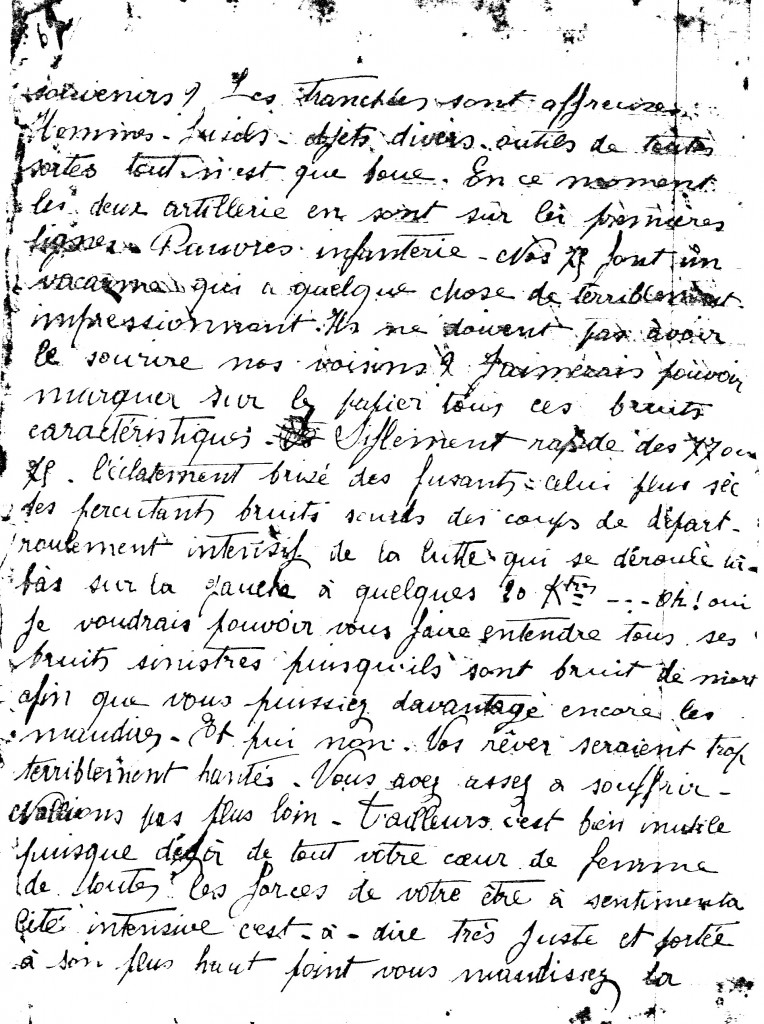 souvenirs ? Les tranchées sont affreuses.
Hommes - fusils - objets divers - outils de toutes
sortes tout n'est que boue. En ce moment
les deux artillerie en sont sur les premières
lignes. Pauvres infanterie - Nos 75 font un
vacarme qui a quelque chose de terriblement
impressionnant. Ils ne doivent pas avoir
le sourire nos voisins ? J'aimerais pouvoir
marquer sur le papier tous ces bruits
caractéristiques - Siflement rapide des 77 ou
75 - l'éclatement brisé des fusants - celui plus sec
des percutants bruits sourds des coups de départ -
roulement intensif de la lutte qui se déroule là-
bas sur la gauche à quelques 20 Ktres --- Oh ! oui
je voudrais pouvoir vous faire entendre tous ses
bruits sinistres puisqu'ils sont bruit de mort
afin que vous puissiez davantage encore les
maudires - Et pui non - Vos rêver seraient trop
terriblement hantés - Vous avez assez a souffrir -
N'allions pas plus loin - D'ailleurs c'est bien inutile
puisque déjà de tout votre cœur de femme
de toutes les forces de votre être à sentimenta
lité intensive c'est-à-dire très juste et portée
à son plus haut point vous maudissez la